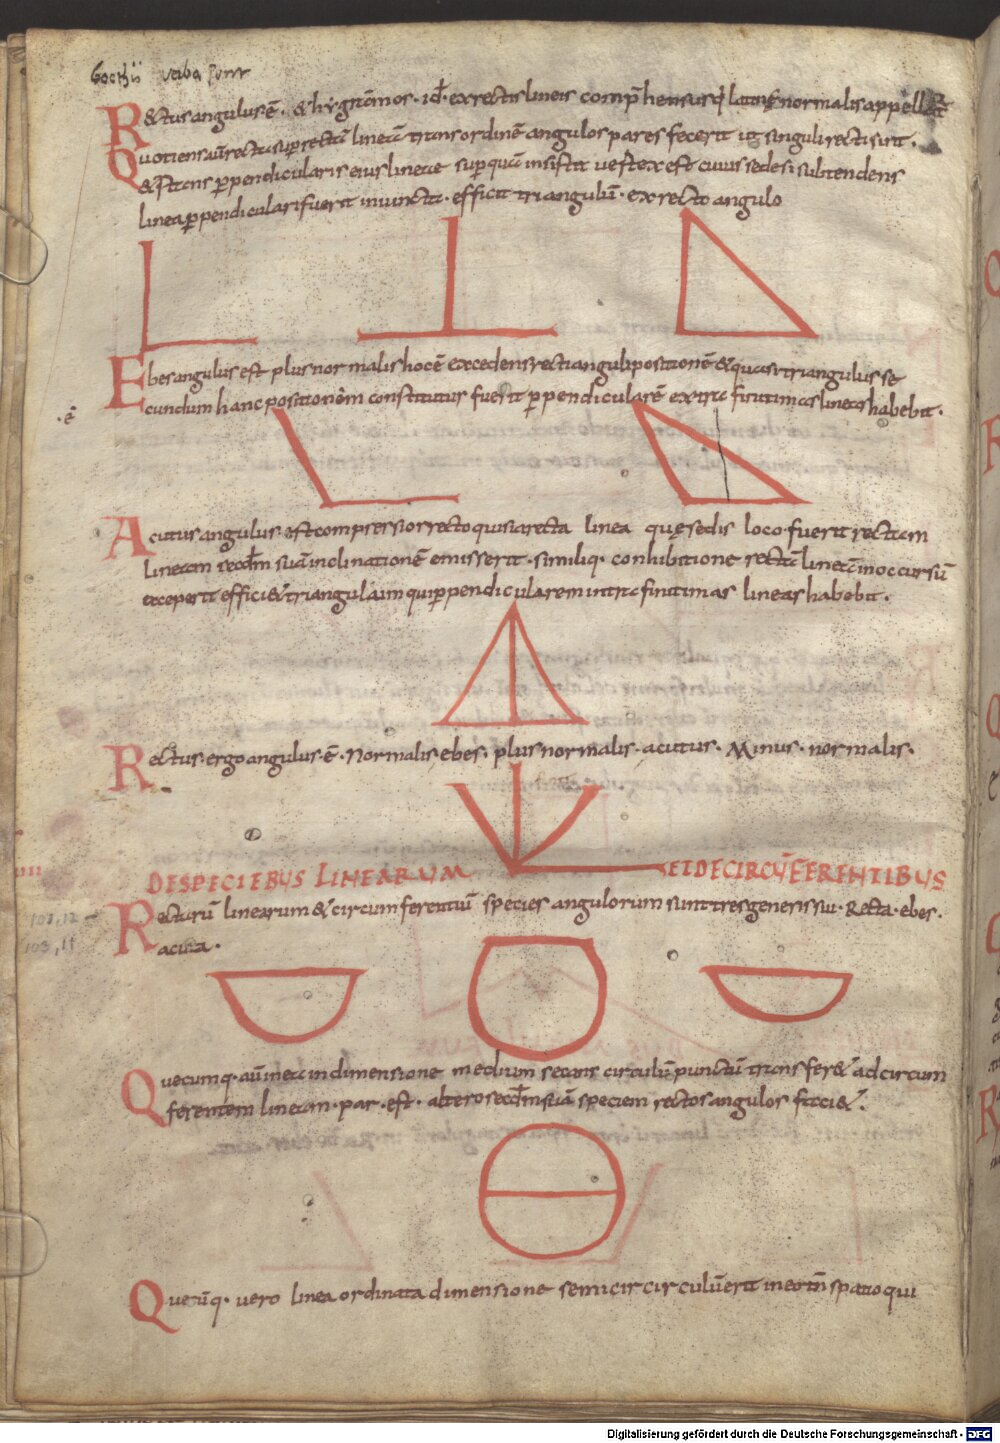 Boethii verba sunt
Rectus angulus ē. & hygrāmos. id ē. ex rectis lineis comp̄hensus q̨ latine normalis appellat̄
Quotiens aū recta sup̄ rectā lineā trans ordinē angulos pares fecerit ut singuli recti sint.
& stans perpendicularis eius lineae super quā insistit uestex est cuius sedes i subtendens
linea perpendiculari fuerit iniuncta. efficit triangulū. ex recto angulo
Ebes angulus est plus normalis hoc ē excedens recti anguli positionē & qui si triangulus se
.ē cundum hanc positionem constitutus fuerit perpendicularē extra finitimas lineas habebit.
Acutus angulus est compressior recto qui si a recta linea que sedis loco fuerit rectam
lineam secdm suā inclinationē emisserit. similiq. conhibitione rectā lineā in occursū
exceperit effici& triangulam qui perpendicularem intra finitimas lineas habebit.
Rectus ergo angulus ē. Normalis. ebes. plus normalis. acutus. Minus. normalis.
DE SPECIEBUS LINEARUM ET DE CIRCŪFERENTIBUS
Recturū linearum & circumferentiū species angulorum sunt tres generis sui. Recta. ebes.
107,12
103,11 acuta.
Quecumq. aū linea in dimensione medium secans circulū punctū transfer& ad circum
ferentem lineam. par. est. altero secdm suā speciem rectos angulos faci&.
Quecūq. vero linea ordinata dimensione semicir circulū erit in eotn̄ spatio qui
Digitalisierung gefördert durch die Deutsche Forschungsgemeinschaft - DFG